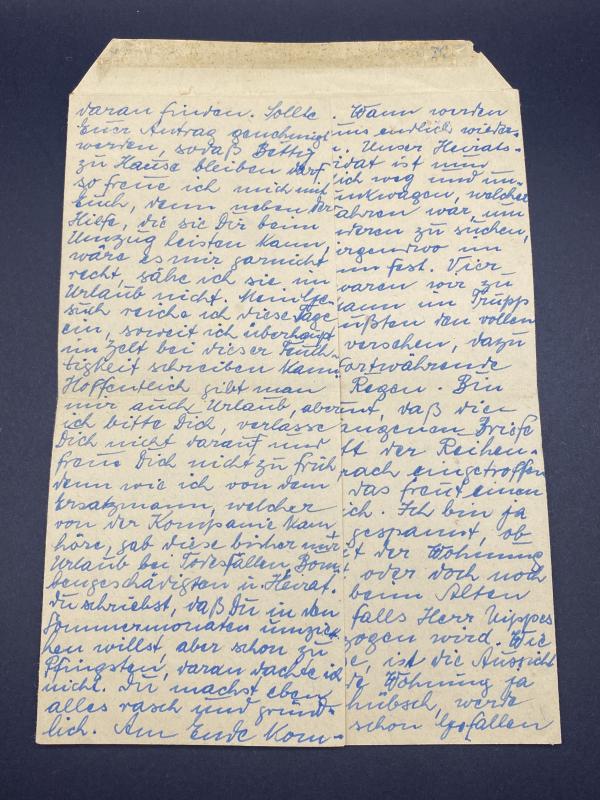 daran finden. Sollte
Euer Antrag genehmigt
werden, sodaß Bettig
zu Hause bleiben darf
so freue ich mich mit
Euch, denn neben der
Hilfe, die sie Dir beim
Umzug leisten kann,
wäre es mir garnicht
recht, sähe ich sie im
Urlaub nicht. Mein Ge-
such reiche ich diese Tage
ein, soweit ich überhaupt
im Zelt bei dieser Feuch-
tigkeit schreiben kann.
Hoffentlich gibt man
mir auch Urlaub, aber
ich bitte Dich, verlasse
Dich nicht darauf und
freue Dich nicht zu früh
denn wie ich von dem
Ersatzmann, welcher
von der Kompanie kam
höre, gab diese bisher nur
Urlaub bei Todesfällen, Bom
bengeschädigten u. Heirat.
Du schriebst, daß Du in den
Sommermonaten umzie-
hen willst, aber schon zu
Pfingsten, daran dachte ich
nicht. Du machst eben
alles rasch und gründ-
lich. Am Ende kom-
. Wann werden
uns endlich wieder-
. Unser Heirats-
idat ist nun
ich weg und un-
unkwagen, welcher
fahren war, um
deren zu suchen,
irgendwo im
m fest. Vier
waren wir zu
ann im Trupp
ußten den vollen
versehen, dazu
fortwährende
Regen. Bin
nt, daß die
angenen Briefe
tt der Reihen-
nach eingetroffen
das freut einen
ich. Ich bin ja
gespannt, ob
it der Wohnung
oder doch noch
beim Alten
falls Herr Nippes
zogen wird. Wie
e, ist die Aussicht
de Wohnung ja
hübsch, werde
schon Gefallen